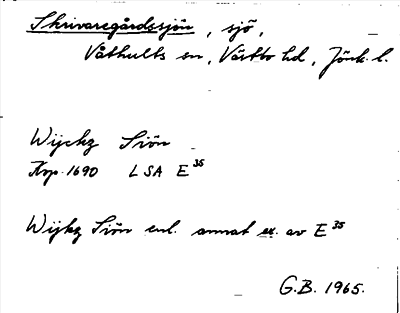 Skrivaregårdssjön, sjö,
Våthults sn, Västbo hd, Jönk. l.
Wijckz Siön
Kop. 1690 LSA E 35
Wijkz Siön enl. annat ex. av E 35
G.B. 1965.